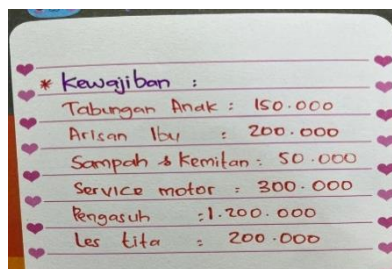 * Kewajiban :
Tabungan Anak : 150.000
Arisan Ibu : 200.000
Sampah & Kemitan : 50.000
Service motor : 300.000
Pengasuh : 1.200.000
Les tita : 200.000